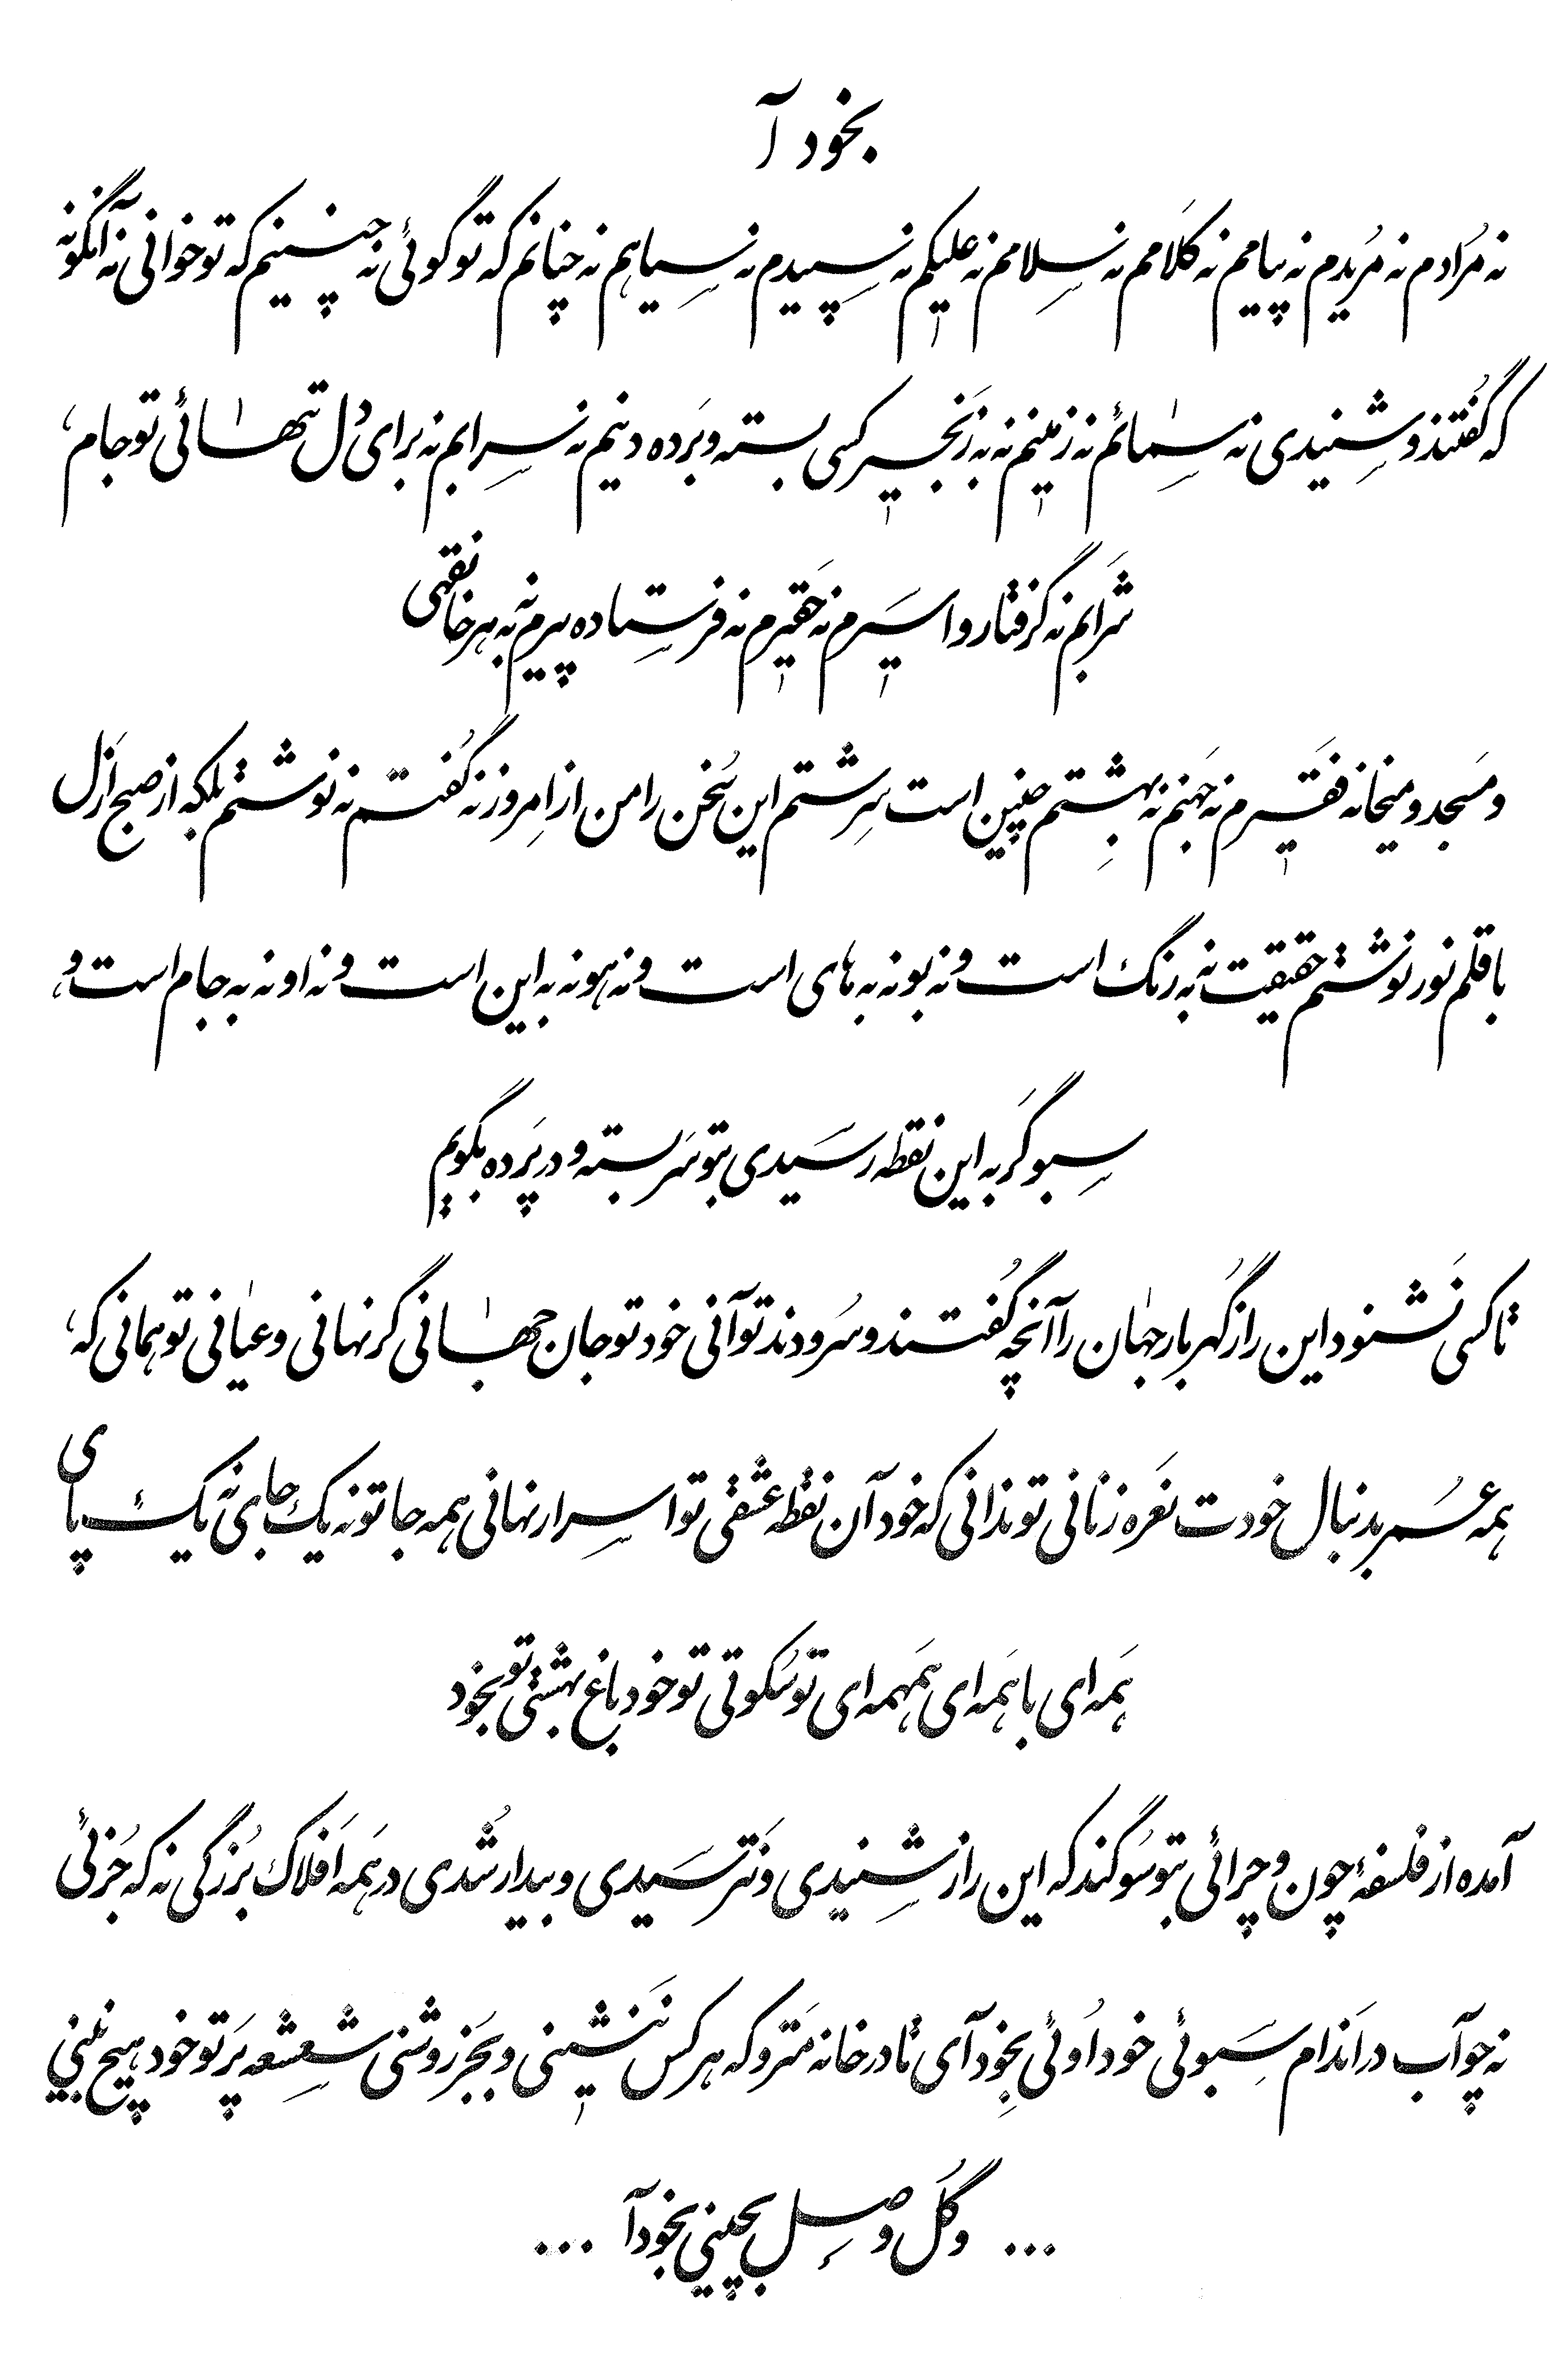 بخود آ
نه مُرادم نه مُریدم نه پیامم نه کَلامم نه سِلامم نه عَلیکم نه سِپیدم نه سِیاهم نه چنانم که تو گوئی نه چنینم که تو خوانی نه آنگونه
که گُفتند و شِنیدی نه سِمائم نه زمینم نه به زَنجیر کسی بسته و بَرده دینم نه سِرابم نه برای دل تنهائی تو جام
شَرابم نه گرفتار و اسیرم نه حَقیرم نه فرِستاده پیرم نه به هر خانقهی
و مَسجد و میخانه فَقیرم نه جَهنم نه بهِشتم چنین است سِرِشتم این سُخن را من از امروز نه گُفتم نه نوشتم بلکه از صبح اَزل
با قلم نور نوشتم حقیقت نه به رنگ است و نه بو نه به های است و نه هو نه به این است و نه او نه به جام است و
سِبو گَر به این نقطه رسیدی بتو سَر بسته و در پَرده بگویم
تا کسی نَشنود این راز گُهر بارِ جهان را آنچه گُفتند و سُرودند تو آنی خود تو جان جهانی گر نهانی و عیانی تو همانی که
همه عُمر بدنبال خودت نَعره زنانی تو ندانی که خود آن نقطه عشقی تو اسِرار نهانی همه جا تو نه یک جای نه یک پای
هَمه ای با هَمه ای هَمهمه ای تو سُکوتی تو خود باغ بهشتی تو بخود
آمده از فلسفهٔ چون و چرائی بتو سُوگند که این راز شِنیدی و نَترسیدی و بیدار شُدی در هَمه اَفلاک بُزرگی نه که جُزئی
نه چو آب در اَندام سَبوئی خود اُوئی بِخود آی تا در خانه مَتروکه هر کس نَنشینی و بجَز روشنی شعشعه پَرتو خود هیچ نبینی
... و گُل وصِل بچینی بخود آ ...